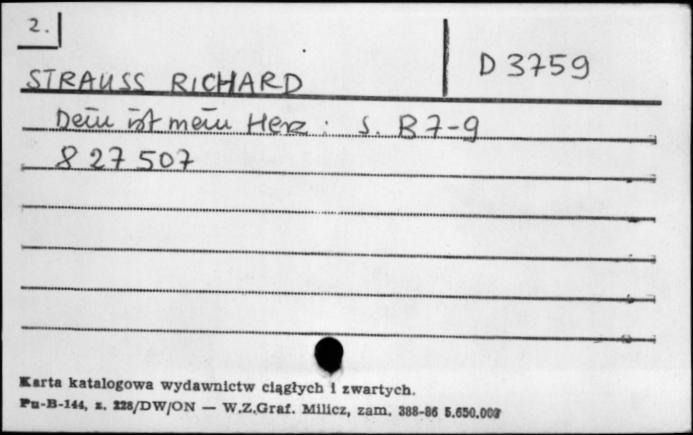 2.
D 3759
STRAUSS RICHARD
Dein ist mein Herz : s. B 7-9
8 27 507
Karta katalogowa wydawnictw ciągłych i zwartych.
Pu-B-144, z. 228/DW/ON — W.Z.Graf. Milicz, zam. 388-86 5.650.000